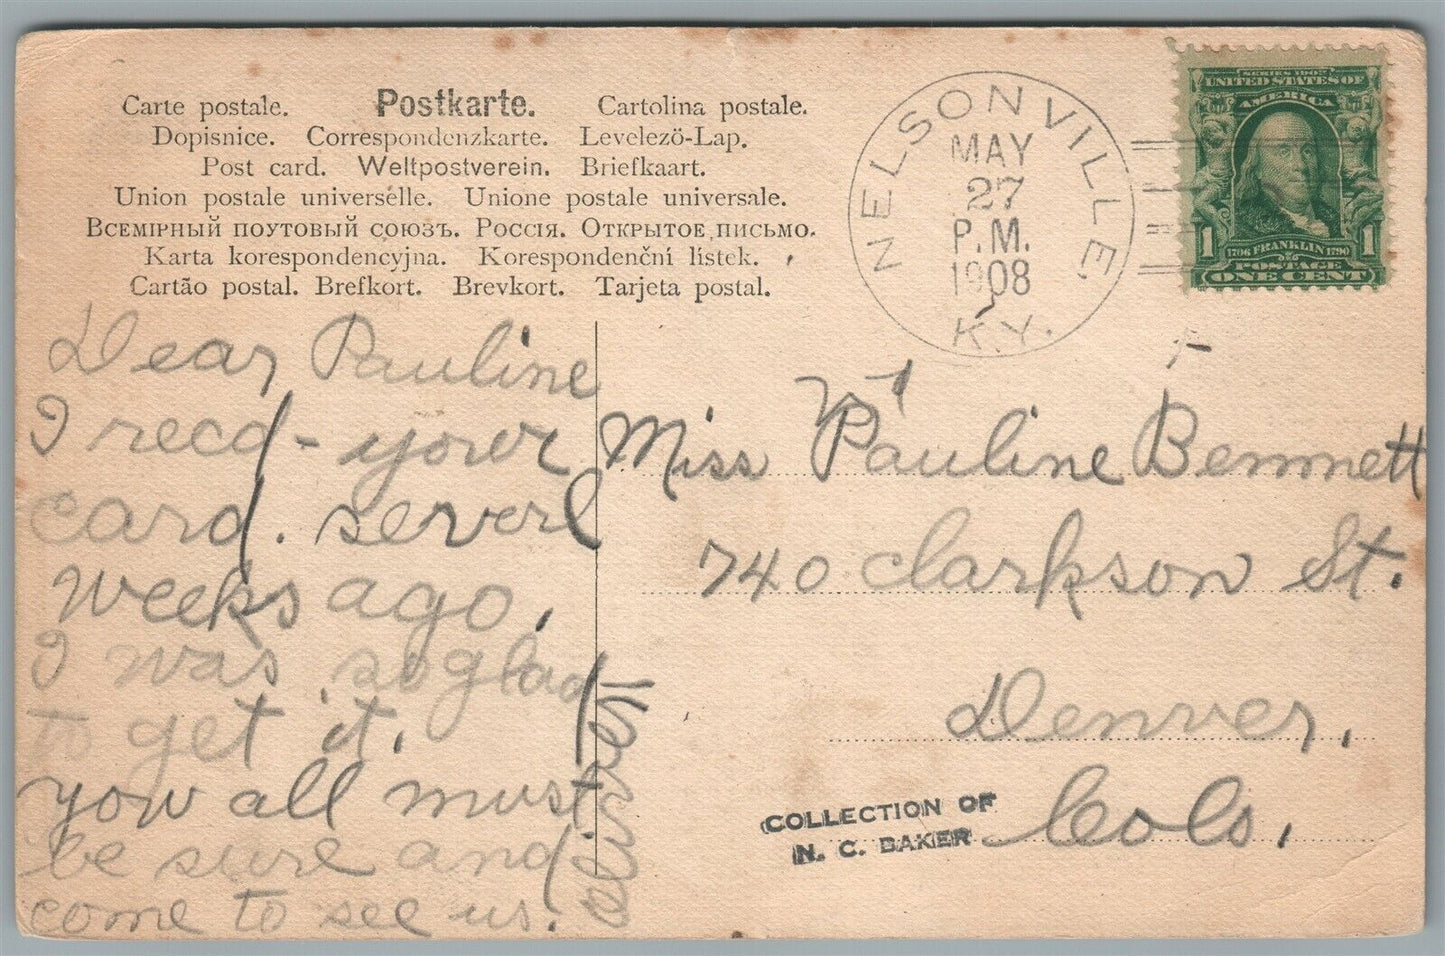 Carte postale. Postkarte. Cartolina postale.
Dopisnice. Correspondenzkarte. Levelező-Lap.
Post card. Weltpostverein. Briefkaart.
Union postale universelle. Unione postale universale.
Всемірный почтовый союзъ. Россія. Открытое письмо.
Karta korespondencyjna. Korespondenční lístek.
Cartão postal. Brefkort. Brevkort. Tarjeta postal.
NELSONVILLE
MAY
27
P.M.
1908
KY.
SERIES 1902
UNITED STATES OF
AMERICA
1 1706 FRANKLIN 1790 1
POSTAGE
ONE CENT
Dear Pauline
I recd- your
card. severl
weeks ago.
I was so glad
to get it.
you all must
be sure and
come to see us.
Miss Pauline Bennett
740 Clarkson St.
Denver,
Colo,
COLLECTION OF
N. C. BAKER